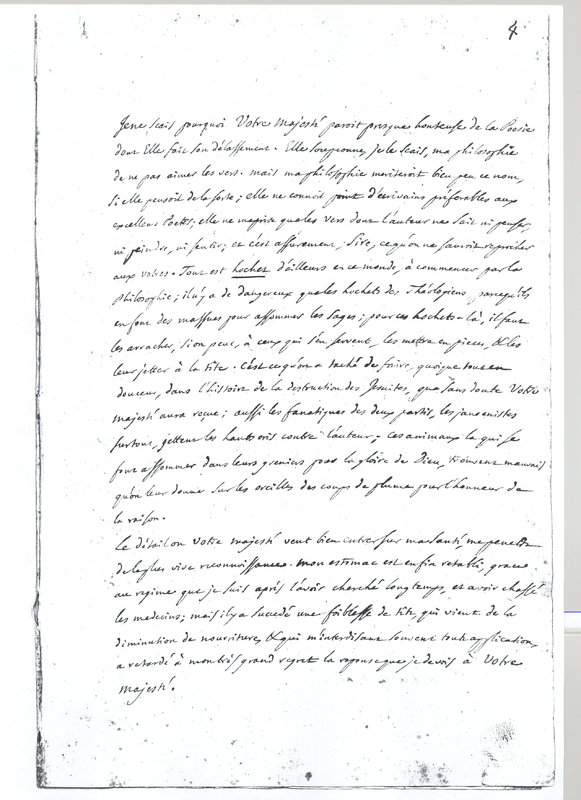 4
Je ne scais pourquoi Votre Majesté paroit presque honteuse de la Poesie
dont Elle fait son délassement. Elle soupçonne, je le scais, ma philosophie
de ne pas aimer les vers. mais ma philosophie meriteroit bien peu ce nom,
si elle pensoit de la sorte; elle ne connoit point d'écrivains préferables aux
excellens Poetes; elle ne meprise que les vers dont l'auteur ne sait ni penser,
ni peindre, ni sentir; et c'est assurement, Sire, ce qu'on ne sauroit reprocher
aux votres. Tout est hochet d'ailleurs en ce monde, à commencer par la
philosophie; il n'y a de dangereux que les hochets des Théologiens parce qu'ils
en font des massues pour assommer les sages; pour ces hochets-là, il faut
les arracher, si on peut, à ceux qui s'en servent, les mettre en pieces, & les
leur jetter à la tête. C'est ce qu'on a taché de faire, quoique tout en
douceur, dans l'histoire de la destruction des Jesuites, que sans doute Votre
Majesté aura reçue; aussi les fanatiques des deux partis, les jansenistes
surtout, jettent les hauts cris contre l'auteur; ces animaux la qui se
font assommer dans leurs greniers pour la gloire de Dieu, trouvent mauvais
qu'on leur donne sur les oreilles des coups de plume pour l'honneur de
la raison.
Le détail où Votre majesté veut bien entrer sur ma santé, me penetre
de la plus vive reconnoissance. mon estomac est enfin retabli, grace
au regime que je suis après l'avoir cherché longtemps, et avoir chassé
les medecins; mais il y a succedé une foiblesse de tête, qui vient de la
diminution de nourriture, & qui m'interdisant souvent toute application,
a retardé à mon très grand regret la reponse que je devois à Votre
Majesté.